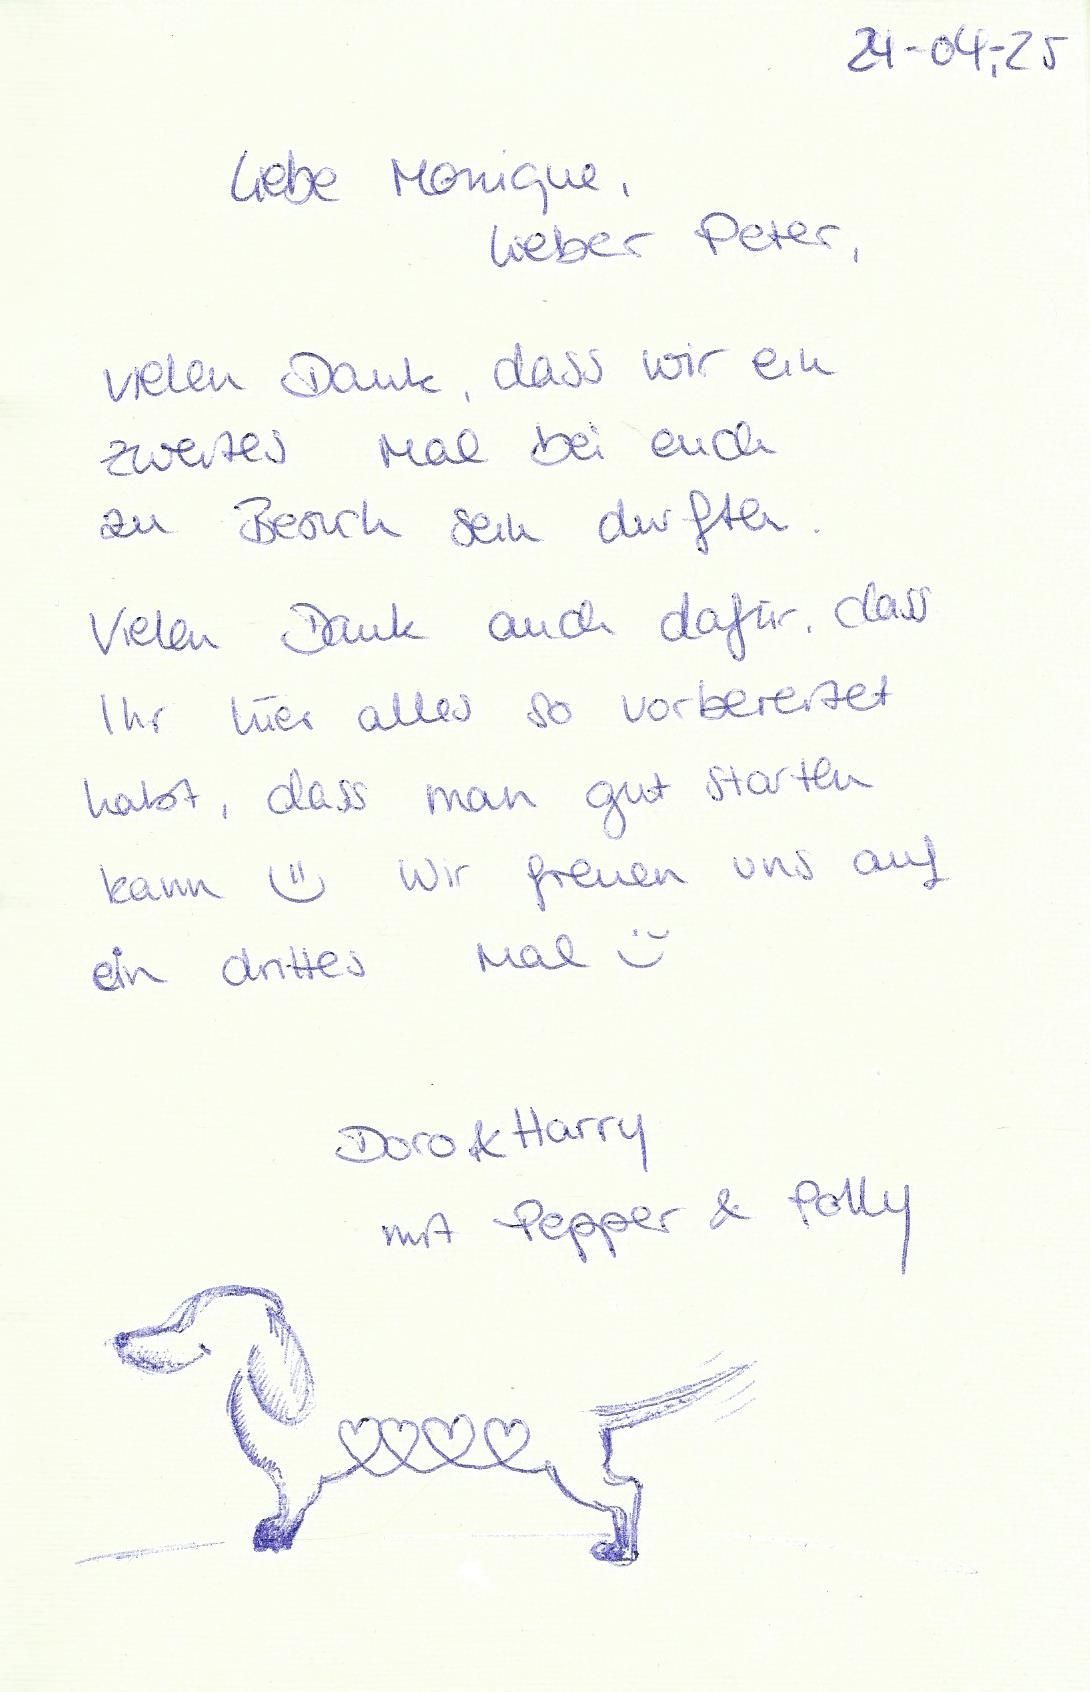 24-04-25
Liebe Monique,
lieber Peter,
vielen Dank, dass wir ein
zweites Mal bei euch
zu Besuch sein durften.
Vielen Dank auch dafür, dass
Ihr hier alles so vorbereitet
habt, dass man gut starten
kann Wir freuen uns auf
ein drittes Mal
Doro & Harry
mit Pepper & Polly